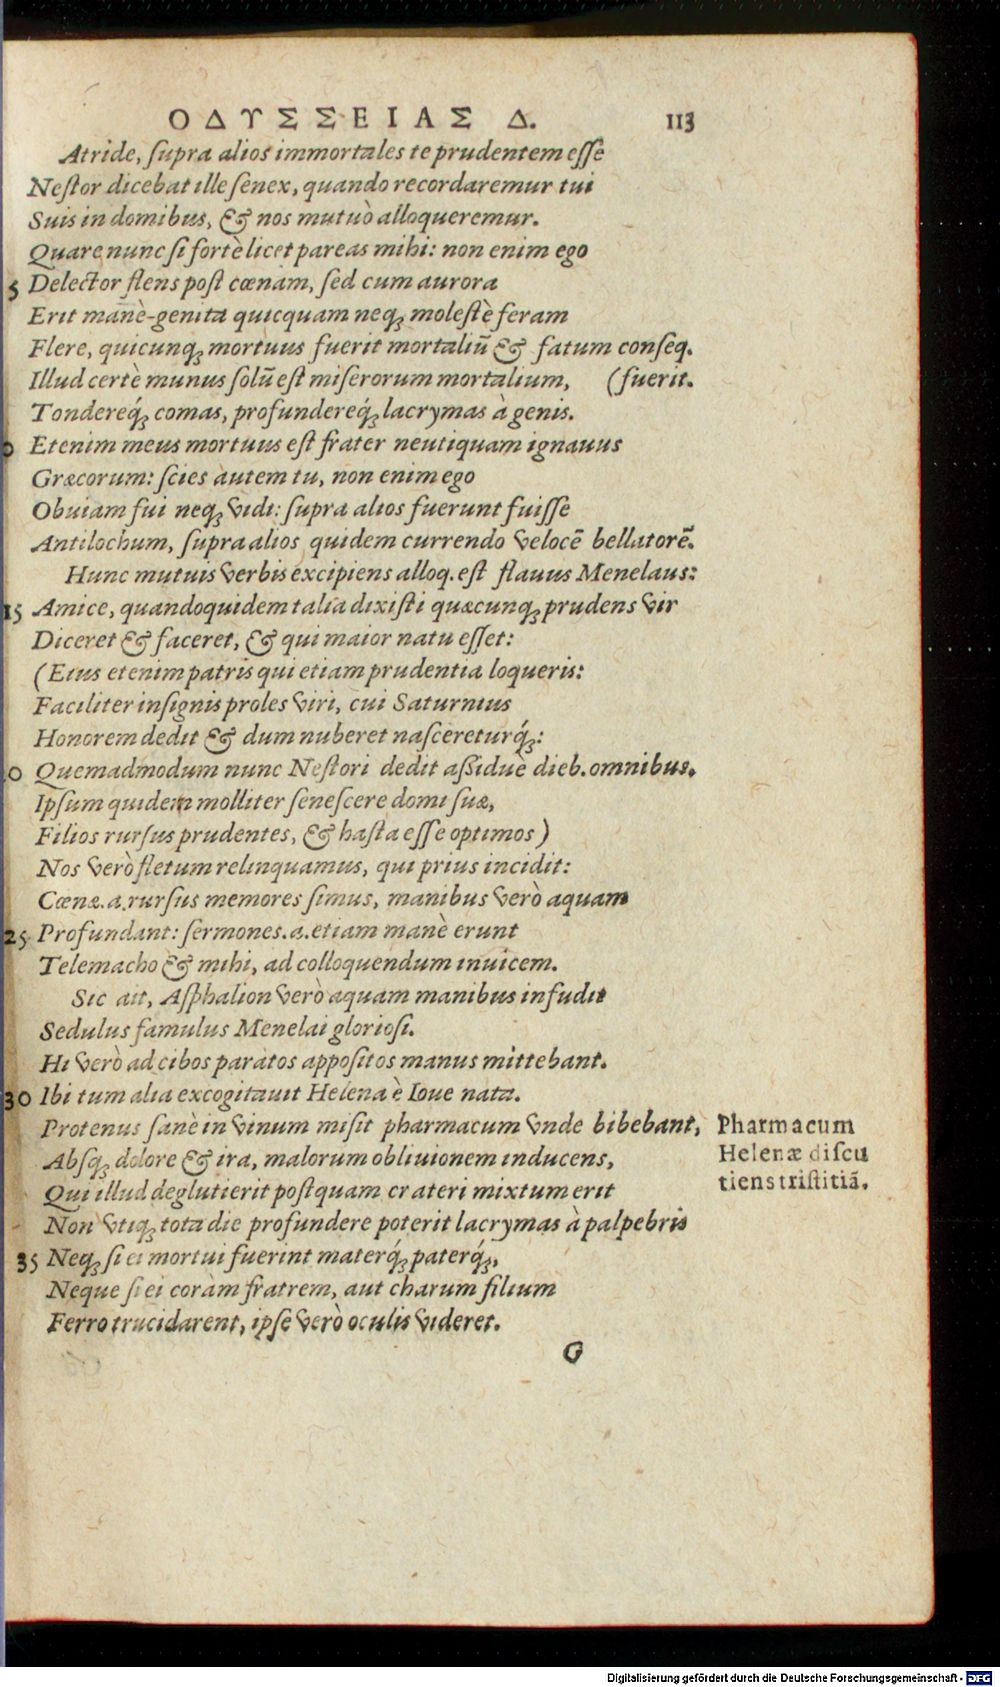 ΟΔΥΣΣΕΙΑΣ Δ. 113
Atride, ſupra alios immortales te prudentem eſſe
Neſtor dicebat ille ſenex, quando recordaremur tui
Suis in domibus, & nos mutuò alloqueremur.
Quare nunc ſi fortè licet pareas mihi: non enim ego
5 Delector flens poſt cœnam, ſed cum aurora
Erit manè-genita quicquam neqꝫ moleſtè feram
Flere, quicunqꝫ mortuus fuerit mortaliũ & fatum conſeq.
Illud certè munus ſolũ eſt miſerorum mortalium, (fuerit.
Tondereq́ꝫ comas, profundereq́ꝫ lacrymas à genis.
0 Etenim meus mortuus eſt frater neutiquam ignauus
Græcorum: ſcies autem tu, non enim ego
Obuiam fui neqꝫ vidi: ſupra alios fuerunt fuiſſe
Antilochum, ſupra alios quidem currendo velocẽ bellatorẽ.
Hunc mutuis verbis excipiens alloq. eſt flauus Menelaus:
15 Amice, quandoquidem talia dixiſti quæcunqꝫ prudens vir
Diceret & faceret, & qui maior natu eſſet:
(Eius etenim patris qui etiam prudentia loqueris:
Faciliter inſignis proles viri, cui Saturnius
Honorem dedit & dum nuberet naſcereturq́ꝫ:
0 Quemadmodum nunc Neſtori dedit aſſiduè dieb. omnibus.
Ipſum quidem molliter ſeneſcere domi ſuæ,
Filios rurſus prudentes, & haſta eſſe optimos)
Nos verò fletum relinquamus, qui prius incidit:
Cœnæ.a.rurſus memores ſimus, manibus verò aquam
25 Profundant: ſermones.a.etiam manè erunt
Telemacho & mihi, ad colloquendum inuicem.
Sic ait, Aſphalion verò aquam manibus infudit
Sedulus famulus Menelai glorioſi.
Hi verò ad cibos paratos appoſitos manus mittebant.
30 Ibi tum alia excogitauit Helena è Ioue nata.
Protenus ſanè in vinum miſit pharmacum vnde bibebant,
Abſqꝫ dolore & ira, malorum obliuionem inducens,
Qui illud deglutierit poſtquam crateri mixtum erit
Non vtiqꝫ tota die profundere poterit lacrymas à palpebris
35 Neqꝫ ſi ei mortui fuerint materq́ꝫ paterq́ꝫ,
Neque ſi ei coràm fratrem, aut charum filium
Ferro trucidarent, ipſe verò oculis videret.
G
Pharmacum
Helenæ diſcu
tiens triſtitiã.
Digitalisierung gefördert durch die Deutsche Forschungsgemeinschaft - DFG